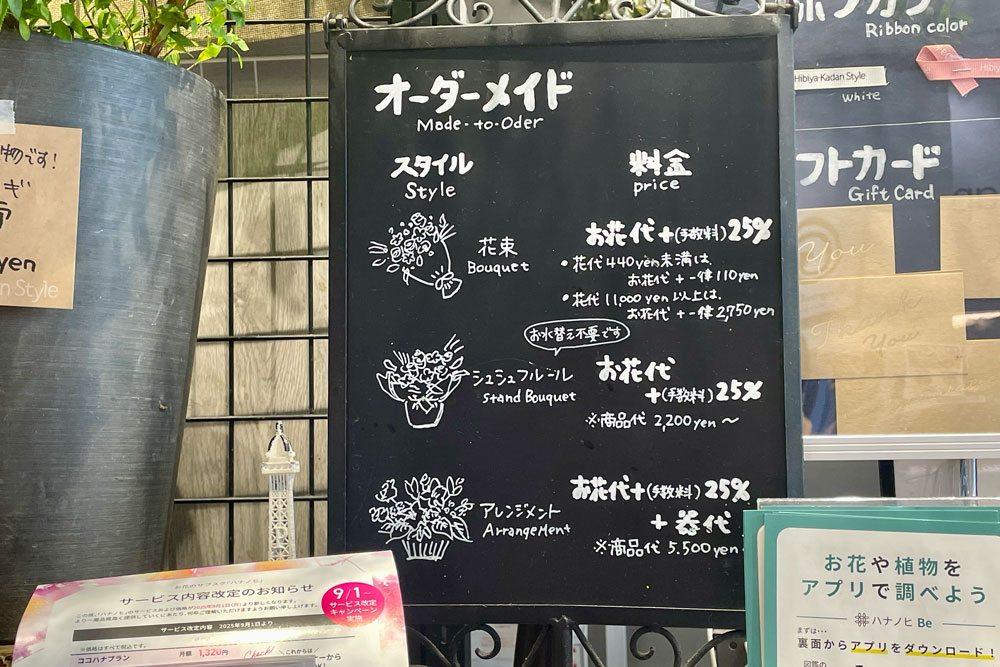 オーダーメイド
Made-to-Oder
スタイル
Style
料金
price
花束
Bouquet
お花代+(手数料)25%
・花代440yen未満は、
お花代+一律110yen
・花代11,000yen以上は、
お花代+一律2,750yen
お水替え不要です
シュシュフルール
Stand Bouquet
お花代
+(手数料)25%
※商品代 2,200yen〜
アレンジメント
ArrangeMent
お花代+(手数料)25%
+器代
※商品代 5,500yen
Ribbon color
Hibiya-Kadan Style
White
フトカード
Gift Card
You
You
物です!
ぎ
yen
n Style
お花のサブスク「ハナノヒ」
サービス内容改定のお知らせ
9/1〜
サービス改定
キャンペーン
実施
サービス改定内容 2025年9月1日より
※価格はすべて税込です。
ココハナプラン
月額 1,320円
Check!
これからは
お花や植物を
アプリで調べよう
ハナノヒ Be
まずは…
裏面からアプリをダウンロード!
図鑑の